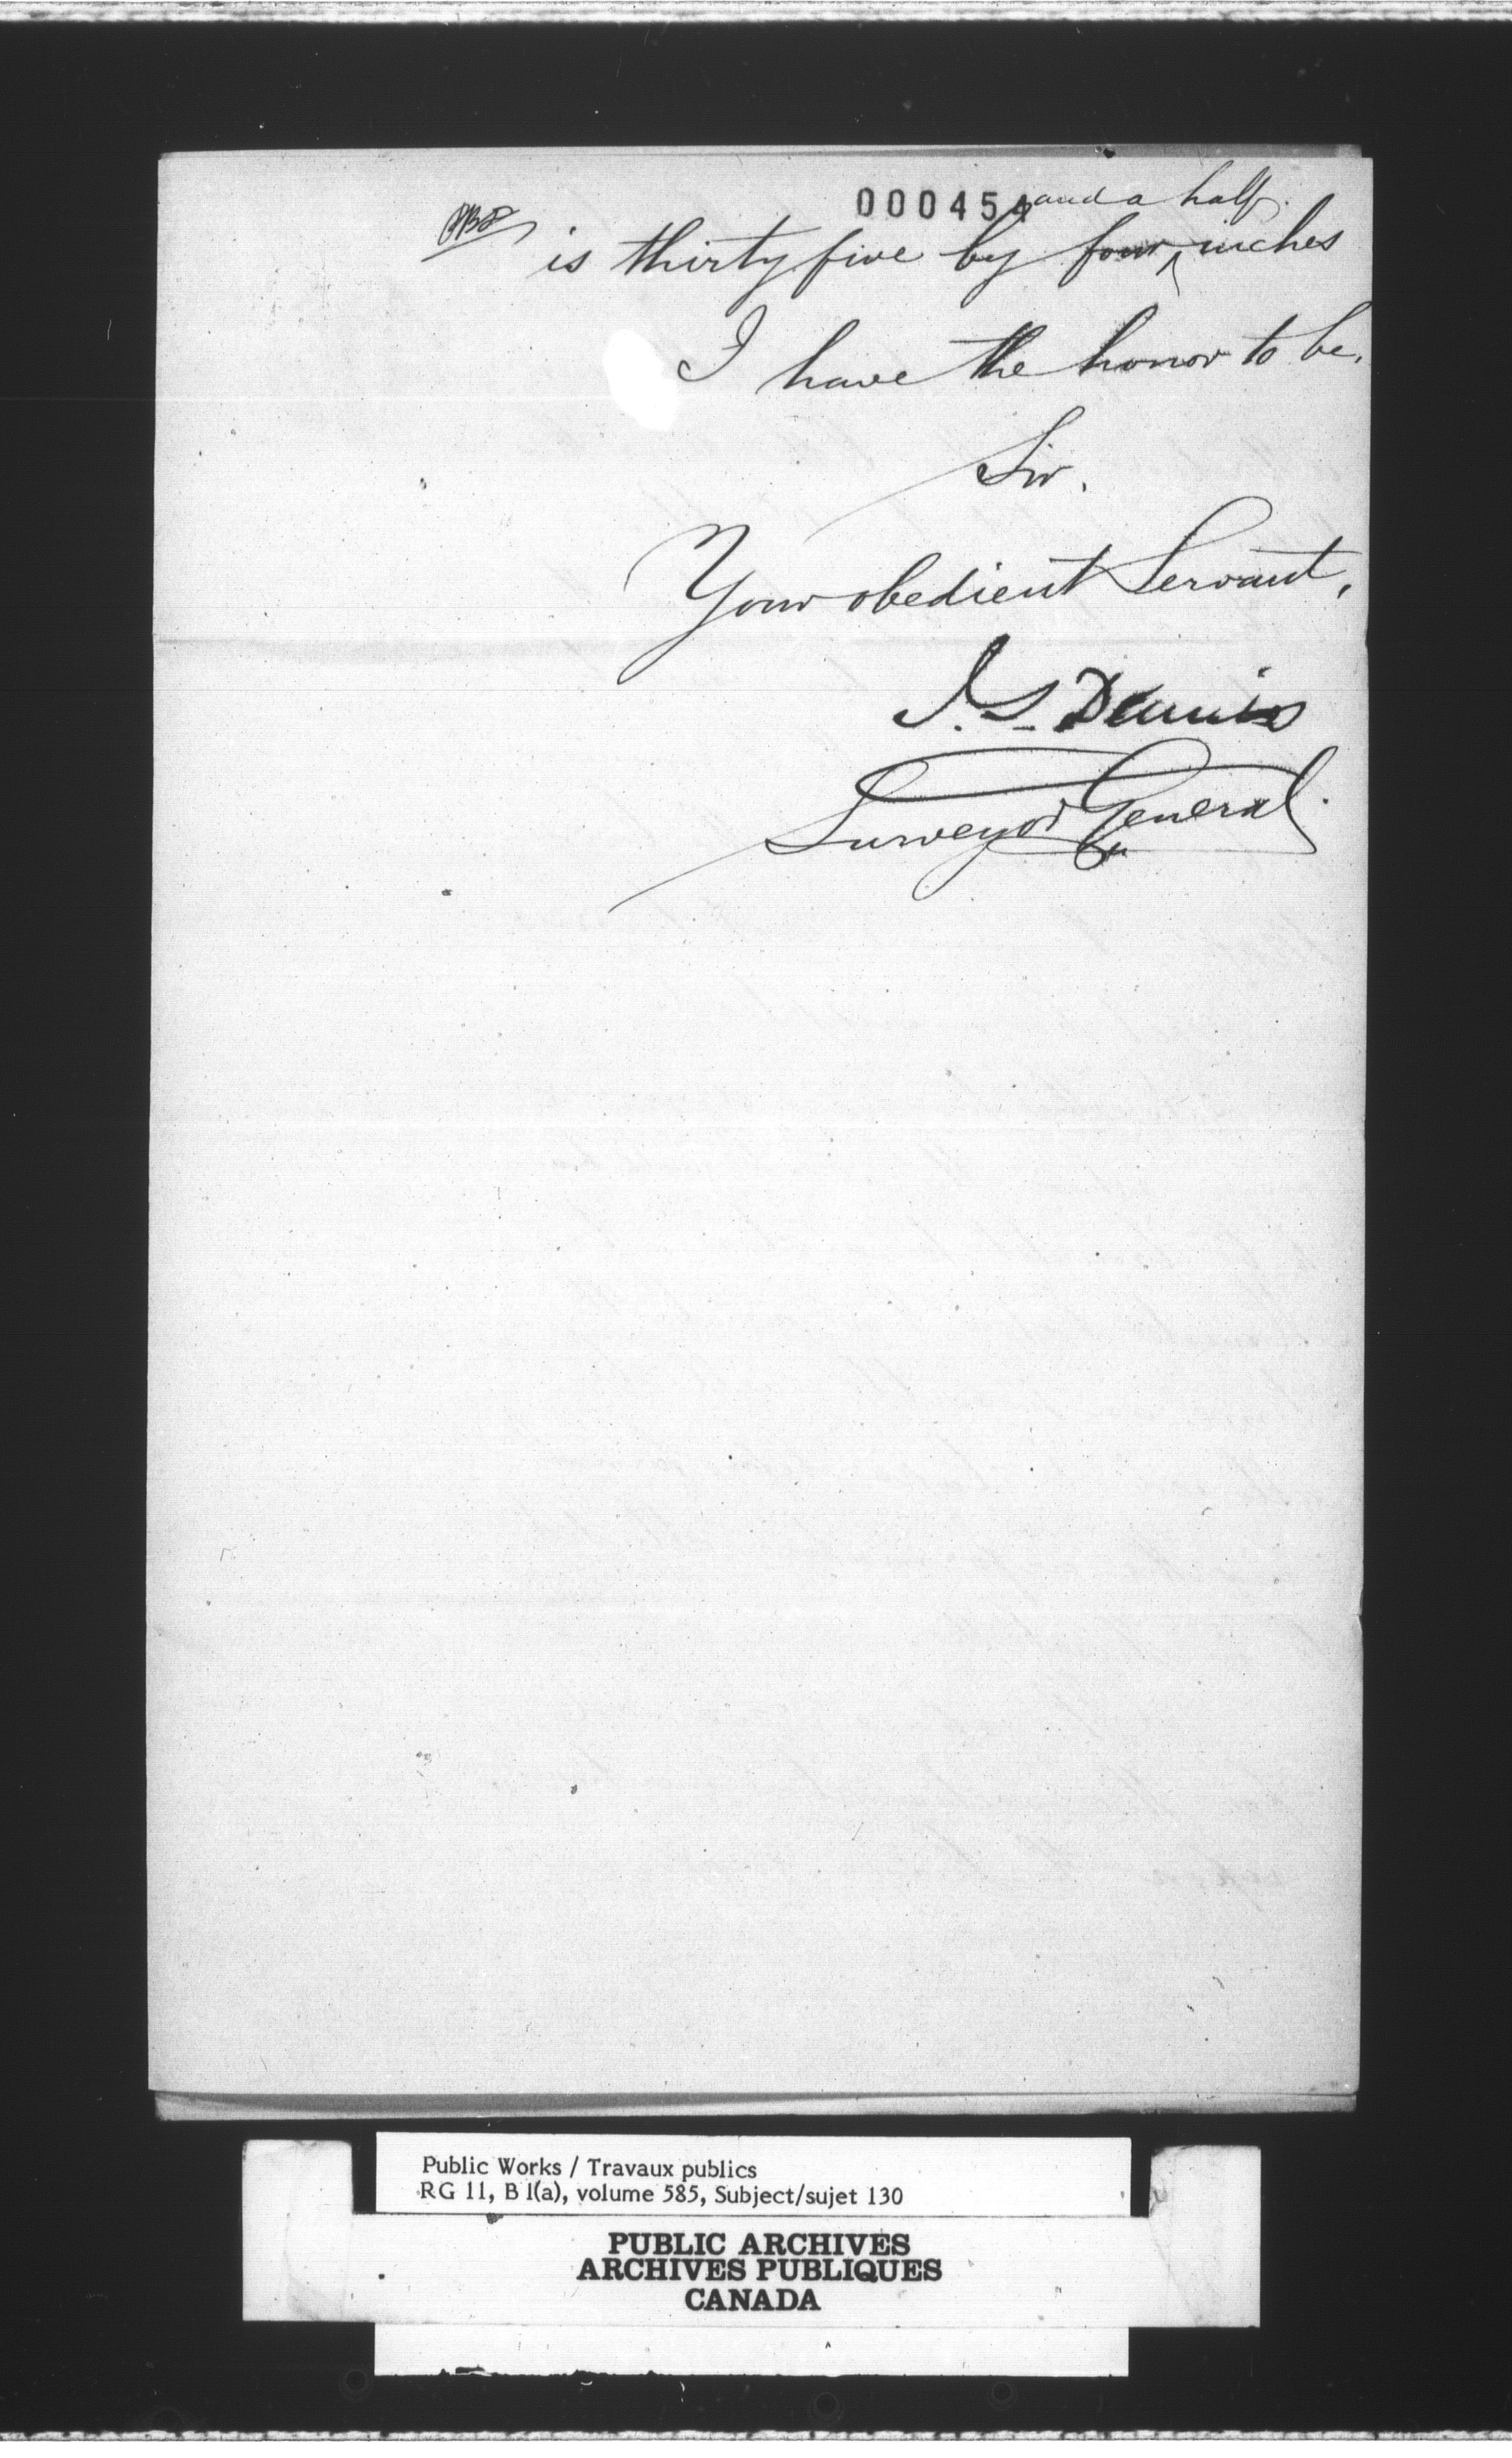 000454
and a half.
is thirty five by four inches
I have the honor to be,
Sir,
Your obedient Servant,
J. S. Dennis
Surveyor General.
Public Works / Travaux publics
RG 11, B 1(a), volume 585, Subject/sujet 130
PUBLIC ARCHIVES
ARCHIVES PUBLIQUES
CANADA